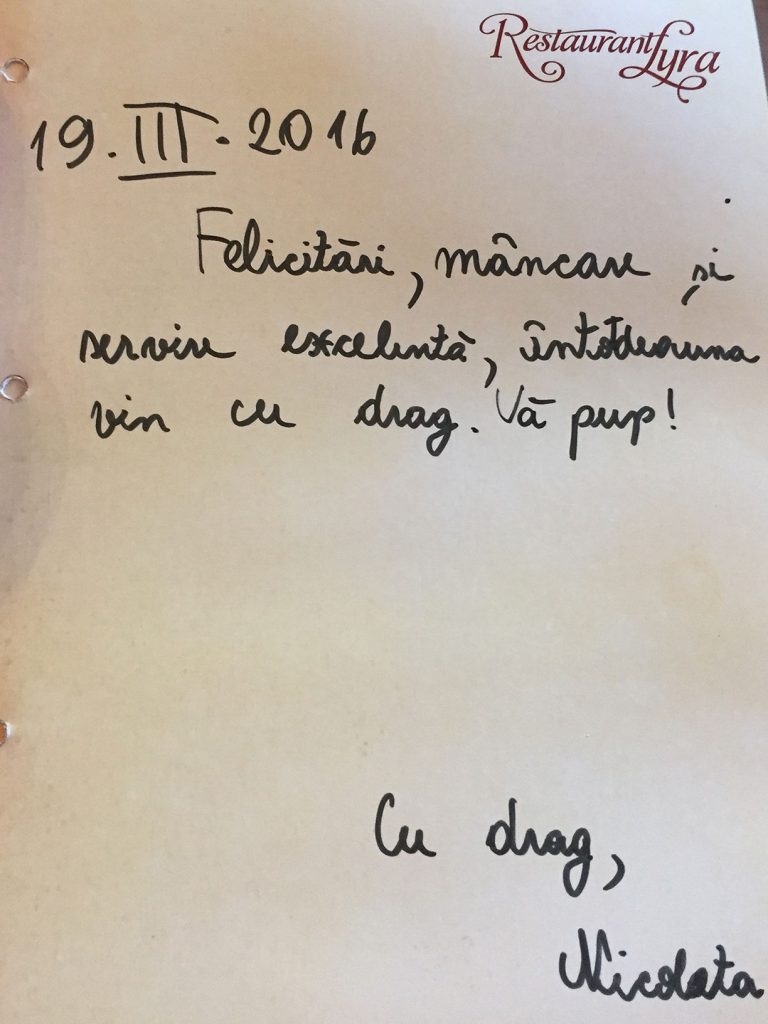 Restaurant Lyra
19.III.2016
Felicitări, mâncare și
servire excelentă, întotdeauna
vin cu drag. Vă pup!
Cu drag,
Nicoleta